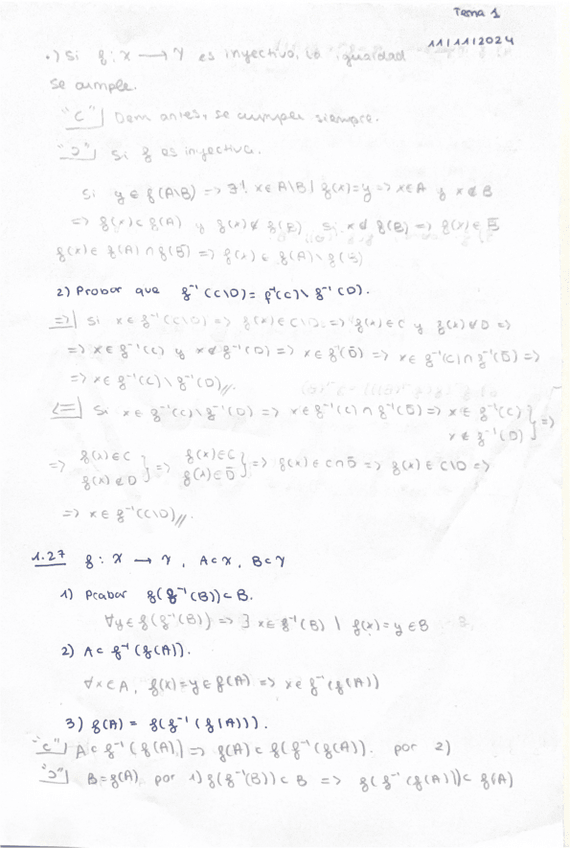 Tema 1
11/11/2024
•) Si f: X → Y es inyectiva, la igualdad
se cumple.
"⊂"| Dem antes, se cumple siempre.
"⊃"| Si f es inyectiva.
Si y ∈ f(A\B) => ∃! x ∈ A\B | f(x)=y => x ∈ A y x ∉ B
=> f(x) ∈ f(A) y f(x) ∉ f(B) si x ∉ f(B) => f(x) ∈ B̄
f(x) ∈ f(A) ∩ f(B̄) => f(x) ∈ f(A) \ f(B)
2) Probar que f⁻¹(C\D) = f⁻¹(C) \ f⁻¹(D).
=>| Si x ∈ f⁻¹(C\D) => f(x) ∈ C\D => f(x) ∈ C y f(x) ∉ D =>
=> x ∈ f⁻¹(C) y x ∉ f⁻¹(D) => x ∈ f⁻¹(D̄) => x ∈ f⁻¹(C) ∩ f⁻¹(D̄) =>
=> x ∈ f⁻¹(C) \ f⁻¹(D) //
<=| Si x ∈ f⁻¹(C) \ f⁻¹(D) => x ∈ f⁻¹(C) ∩ f⁻¹(D̄) => x ∈ f⁻¹(C) } =>
x ∉ f⁻¹(D)
=> f(x) ∈ C } => f(x) ∈ C } => f(x) ∈ C ∩ D̄ => f(x) ∈ C\D =>
f(x) ∉ D f(x) ∈ D̄
=> x ∈ f⁻¹(C\D) //
1.27 f: X → Y, A ⊂ X, B ⊂ Y
1) Probar f(f⁻¹(B)) ⊂ B.
∀y ∈ f(f⁻¹(B)) => ∃ x ∈ f⁻¹(B) | f(x) = y ∈ B
2) A ⊂ f⁻¹(f(A)).
∀x ∈ A, f(x) = y ∈ f(A) => x ∈ f⁻¹(f(A))
3) f(A) = f(f⁻¹(f(A))).
"⊂"| A ⊂ f⁻¹(f(A)) => f(A) ⊂ f(f⁻¹(f(A))). por 2)
"⊃"| B = f(A), por 1) f(f⁻¹(B)) ⊂ B => f(f⁻¹(f(A))) ⊂ f(A)